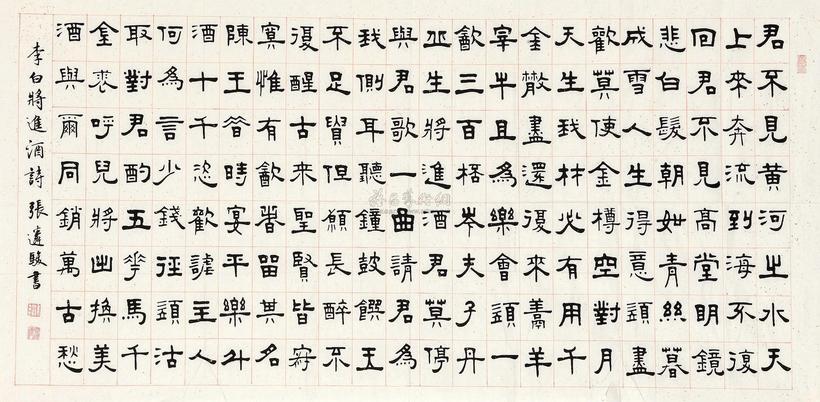 君不見黃河之水天
上來奔流到海不復
回君不見高堂明鏡
悲白髮朝如青絲暮
成雪人生得意須盡
歡莫使金樽空對月
天生我材必有用千
金散盡還復來羊
宰牛且為樂會須一
飲三百桮岑夫子丹
丘生將進酒君莫停
與君歌一曲請君為
我側耳聽鐘鼓饌玉
不足貴但願長醉不
復醒古來聖賢皆寂
寞惟有飲者留其名
陳王昔時宴平樂斗
酒十千恣歡謔主人
何為言少錢徑須沽
取對君酌五花馬千
金裘呼兒將出換美
酒與爾同銷萬古愁
李白將進酒詩 張遴駿書